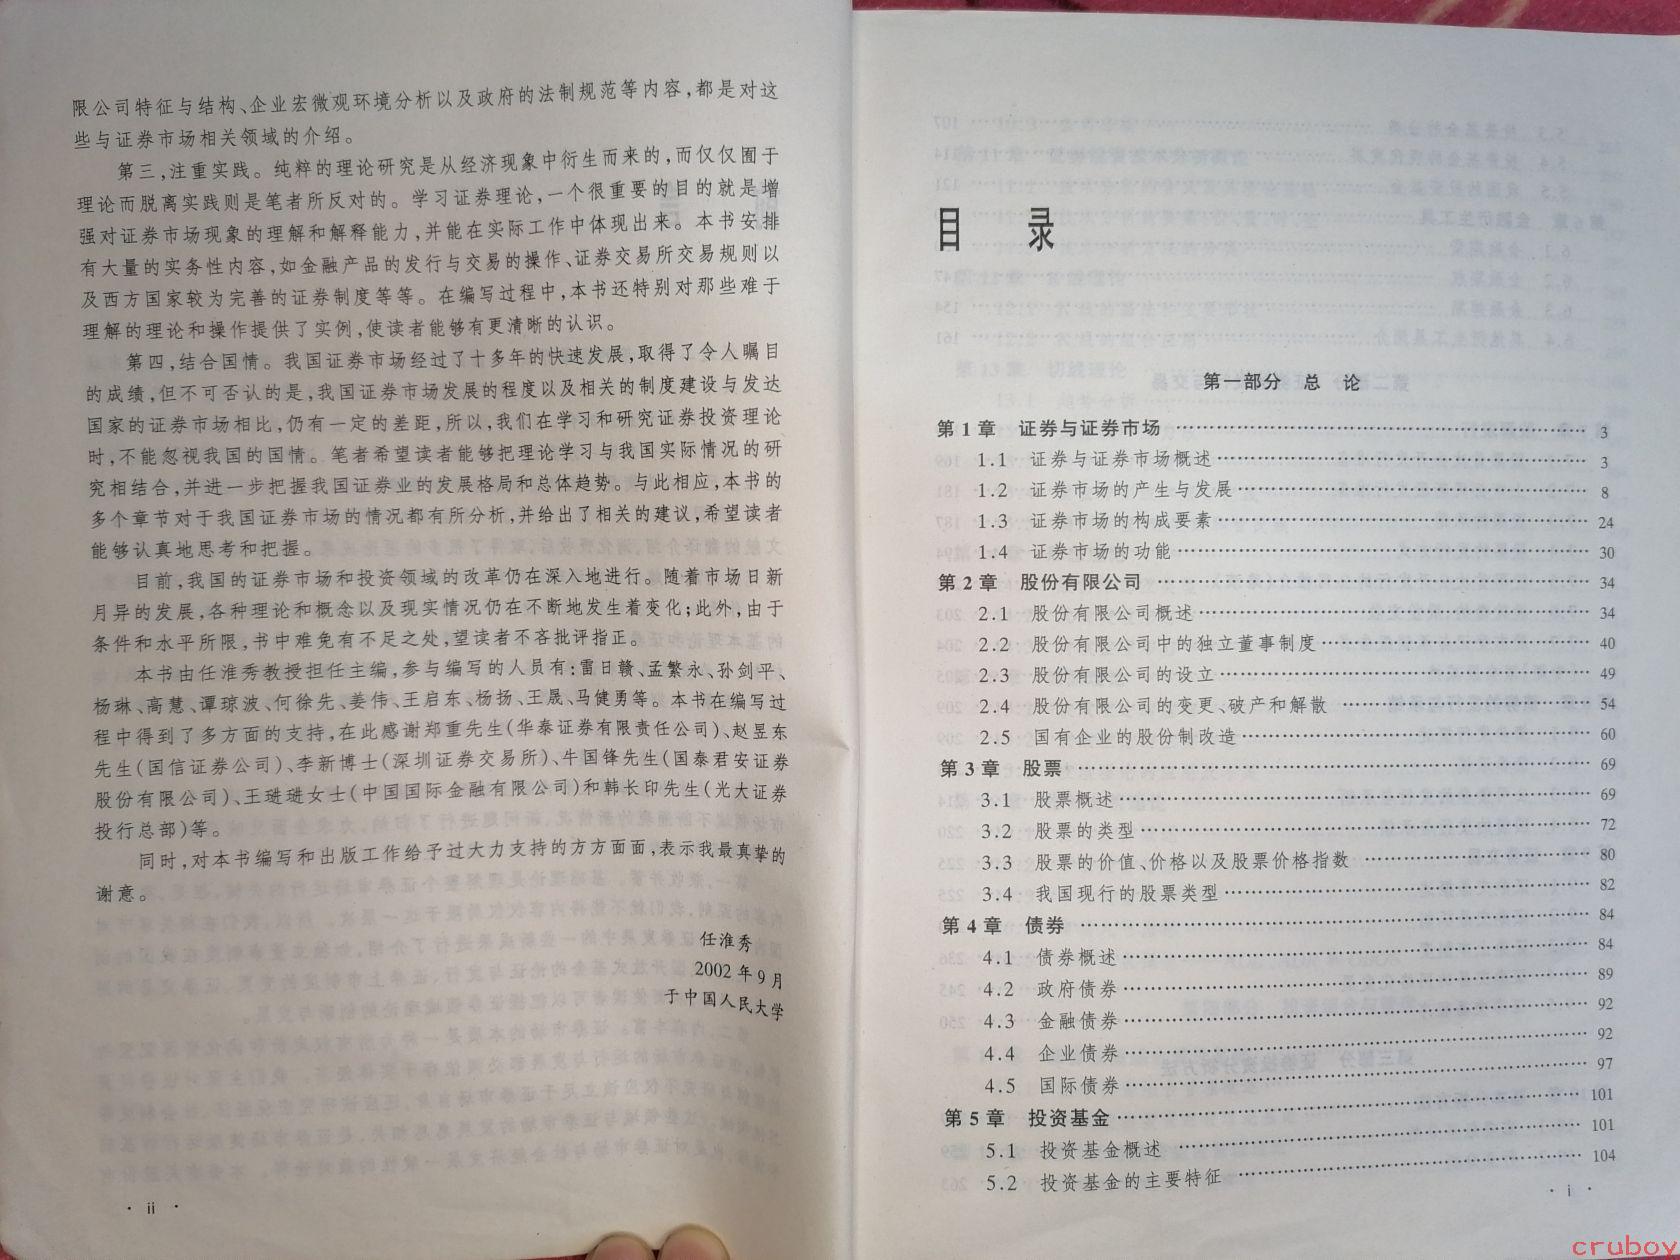 限公司特征与结构、企业宏微观环境分析以及政府的法制规范等内容,都是对这
些与证券市场相关领域的介绍。
第三,注重实践。纯粹的理论研究是从经济现象中衍生而来的,而仅仅囿于
理论而脱离实践则是笔者所反对的。学习证券理论,一个很重要的目的就是增
强对证券市场现象的理解和解释能力,并能在实际工作中体现出来。本书安排
有大量的实务性内容,如金融产品的发行与交易的操作、证券交易所交易规则以
及西方国家较为完善的证券制度等等。在编写过程中,本书还特别对那些难于
理解的理论和操作提供了实例,使读者能够有更清晰的认识。
第四,结合国情。我国证券市场经过了十多年的快速发展,取得了令人瞩目
的成绩,但不可否认的是,我国证券市场发展的程度以及相关的制度建设与发达
国家的证券市场相比,仍有一定的差距,所以,我们在学习和研究证券投资理论
时,不能忽视我国的国情。笔者希望读者能够把理论学习与我国实际情况的研
究相结合,并进一步把握我国证券业的发展格局和总体趋势。与此相应,本书的
多个章节对于我国证券市场的情况都有所分析,并给出了相关的建议,希望读者
能够认真地思考和把握。
目前,我国的证券市场和投资领域的改革仍在深入地进行。随着市场日新
月异的发展,各种理论和概念以及现实情况仍在不断地发生着变化;此外,由于
条件和水平所限,书中难免有不足之处,望读者不吝批评指正。
本书由任淮秀教授担任主编,参与编写的人员有:雷日赣、孟繁永、孙剑平、
杨琳、高慧、谭琼波、何徐先、姜伟、王启东、杨扬、王晟、马健勇等。本书在编写过
程中得到了多方面的支持,在此感谢郑重先生(华泰证券有限责任公司)、赵昱东
先生(国信证券公司)、李新博士(深圳证券交易所)、牛国锋先生(国泰君安证券
股份有限公司)、王琎琎女士(中国国际金融有限公司)和韩长印先生(光大证券
投行总部)等。
同时,对本书编写和出版工作给予过大力支持的方方面面,表示我最真挚的
谢意。
任淮秀
2002年9月
于中国人民大学
· ii ·
目 录
第一部分 总 论
第1章 证券与证券市场 …… 3
1.1 证券与证券市场概述 …… 3
1.2 证券市场的产生与发展 …… 8
1.3 证券市场的构成要素 …… 24
1.4 证券市场的功能 …… 30
第2章 股份有限公司 …… 34
2.1 股份有限公司概述 …… 34
2.2 股份有限公司中的独立董事制度 …… 40
2.3 股份有限公司的设立 …… 49
2.4 股份有限公司的变更、破产和解散 …… 54
2.5 国有企业的股份制改造 …… 60
第3章 股票 …… 69
3.1 股票概述 …… 69
3.2 股票的类型 …… 72
3.3 股票的价值、价格以及股票价格指数 …… 80
3.4 我国现行的股票类型 …… 82
第4章 债券 …… 84
4.1 债券概述 …… 84
4.2 政府债券 …… 89
4.3 金融债券 …… 92
4.4 企业债券 …… 92
4.5 国际债券 …… 97
第5章 投资基金 …… 101
5.1 投资基金概述 …… 101
5.2 投资基金的主要特征 …… 104
· i ·
cruboy